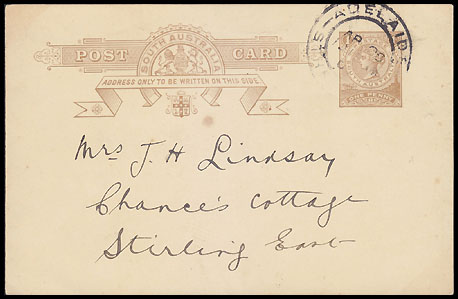 ADELAIDE
AP 29
SOUTH AUSTRALIA
POST CARD
ADDRESS ONLY TO BE WRITTEN ON THIS SIDE.
Mrs J. H Lindsay
Chance's Cottage
Stirling East